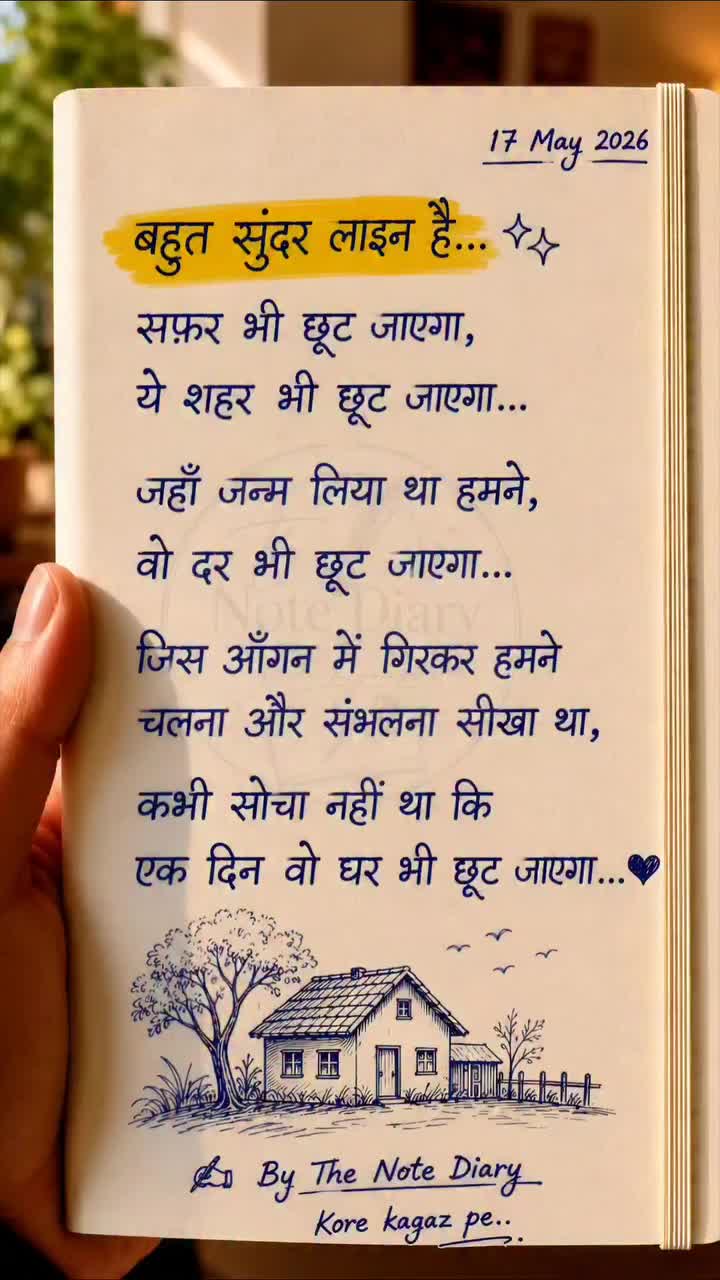 17 May 2026
बहुत सुंदर लाइन है...
सफ़र भी छूट जाएगा,
ये शहर भी छूट जाएगा...
जहाँ जन्म लिया था हमने,
वो दर भी छूट जाएगा...
Note Diary
जिस आँगन में गिरकर हमने
चलना और संभलना सीखा था,
कभी सोचा नहीं था कि
एक दिन वो घर भी छूट जाएगा...
By The Note Diary
Kore kagaz pe..